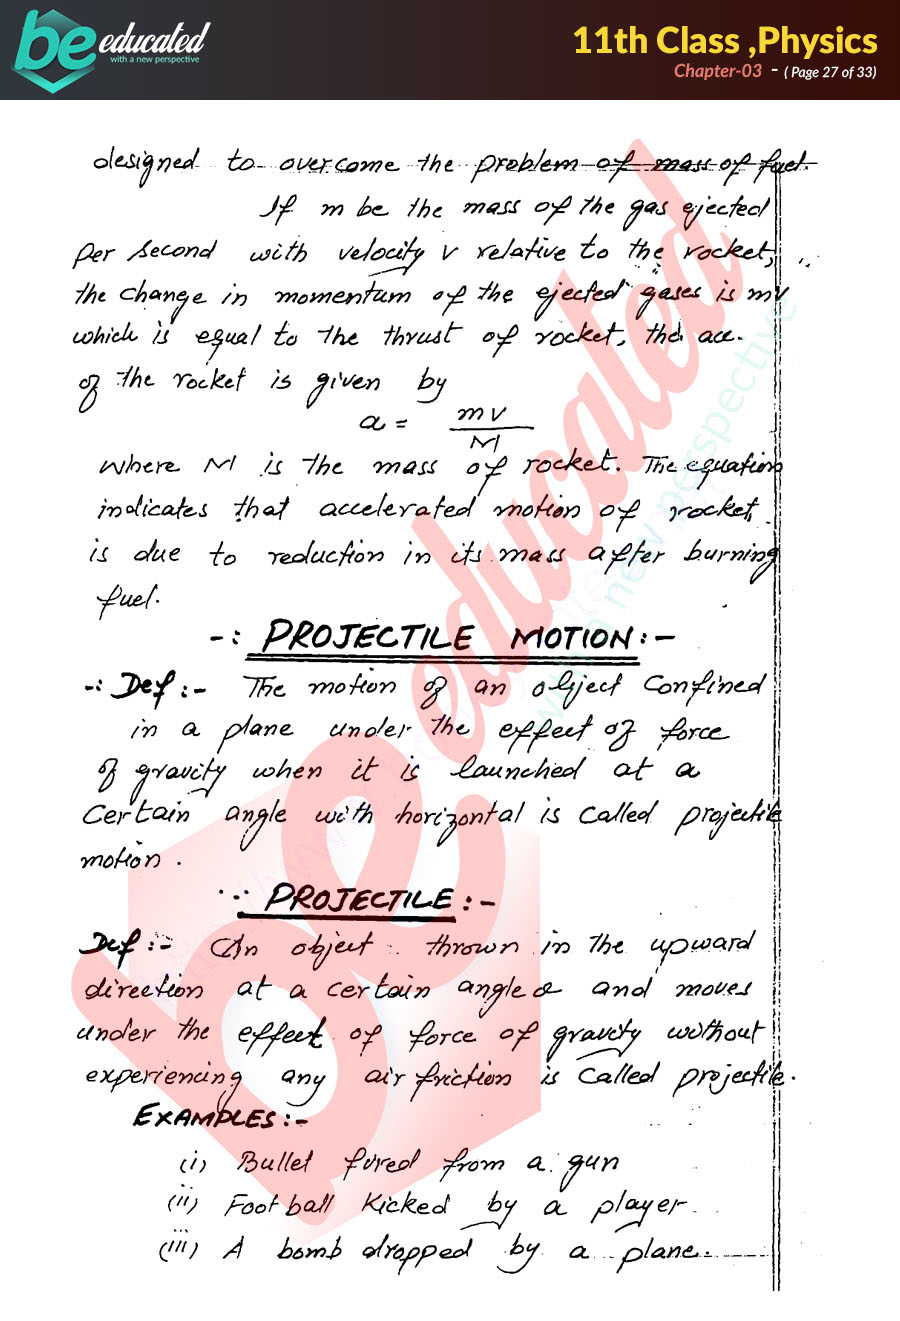 be educated
with a new perspective
11th Class ,Physics
Chapter-03 - ( Page 27 of 33)
designed to overcome the problem of mass of fuel.
If m be the mass of the gas ejected
per second with velocity v relative to the rocket,
the change in momentum of the ejected gases is mv
which is equal to the thrust of rocket, the acc.
of the rocket is given by
a = mv
M
where M is the mass of rocket. The equation
indicates that accelerated motion of rocket
is due to reduction in its mass after burning
fuel.
-: PROJECTILE MOTION:-
-: Def:- The motion of an object confined
in a plane under the effect of force
of gravity when it is launched at a
certain angle with horizontal is called projectile
motion.
PROJECTILE:-
Def:- An object thrown in the upward
direction at a certain angle and moves
under the effect of force of gravity without
experiencing any air friction is called projectile.
EXAMPLES:-
(i) Bullet fired from a gun
(ii) Foot ball kicked by a player
(iii) A bomb dropped by a plane.
be educated
with a new perspective